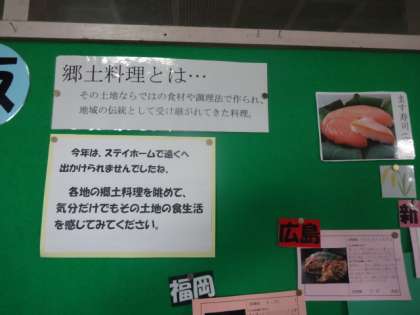 郷土料理とは…
その土地ならではの食材や調理法で作られ、
地域の伝統として受け継がれてきた料理。
今年は、ステイホームで遠くへ
出かけられませんでしたね。
各地の郷土料理を眺めて、
気分だけでもその土地の食生活
を感じてみてください。
ます寿司
広島
福岡
新
阪